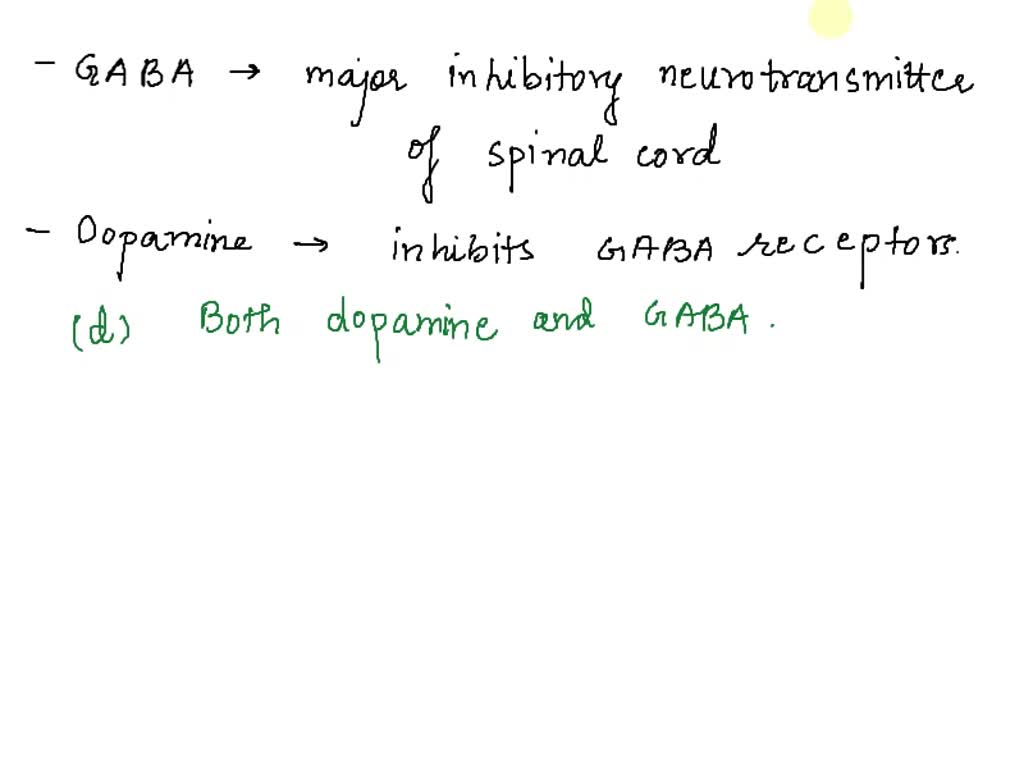 - GABA → major inhibitory neurotransmitter
of spinal cord
- Dopamine → inhibits GABA receptors.
(d) Both dopamine and GABA.